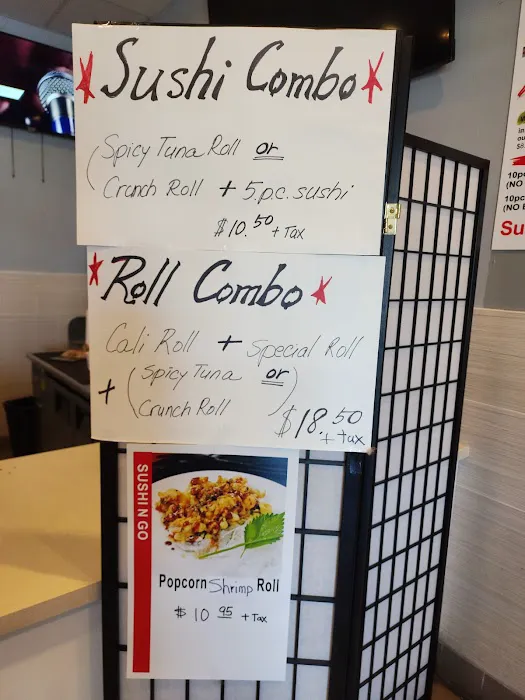 Sushi Combo
(Spicy Tuna Roll or
Crunch Roll + 5.p.c. sushi
$10.50 + Tax
Roll Combo
Cali Roll + Special Roll
+ (Spicy Tuna or)
Crunch Roll
$18.50
+ tax
SUSHI N GO
Popcorn Shrimp Roll
$10 95 + Tax
10pc
(NO
10pc
(NO
Su